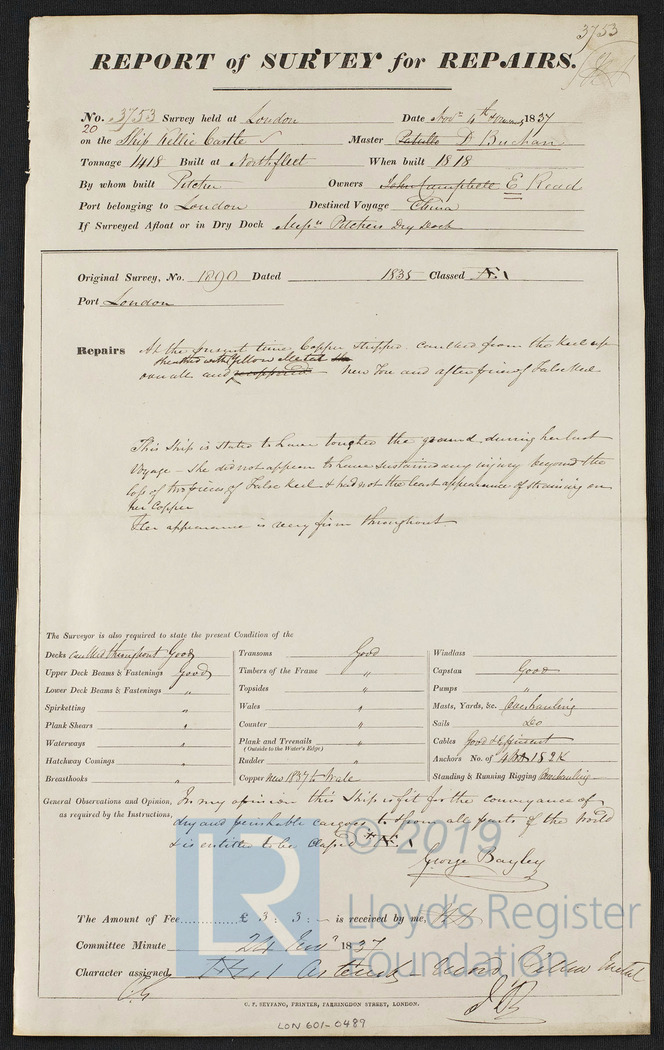 3753
REPORT of SURVEY for REPAIRS.
No. 3753 Survey held at London Date Novr 4th 1837
20
on the Ship Kellie Castle Master Patullo D Buchan
Tonnage 1418 Built at Northfleet When built 1818
By whom built Pitcher Owners John Campbell E. Read
Port belonging to London Destined Voyage China
If Surveyed Afloat or in Dry Dock Messrs Pitchers Dry Dock
Original Survey, No. 1890 Dated 1835 Classed Æ 1
Port London
Repairs At the present time Copper stripped caulked from the Keel up
sheathed with Yellow Metal
overall and recoppered New Fore and after piece of False Keel
This Ship is stated to have touched the ground during her last
Voyage - She did not appear to have sustained any injury beyond the
loss of two pieces of False Keel & had not the least appearance of straining on
her Copper
Her appearance is very firm throughout
The Surveyor is also required to state the present Condition of the
Decks caulked throughout Good
Upper Deck Beams & Fastenings Good
Lower Deck Beams & Fastenings "
Spirketting "
Plank Shears "
Waterways "
Hatchway Comings "
Breasthooks "
Transoms Good
Timbers of the Frame "
Topsides "
Wales "
Counter "
Plank and Treenails "
(Outside to the Water's Edge)
Rudder "
Copper New 1837 to Wale
Windlass
Capstan Good
Pumps "
Masts, Yards, &c. Overhauling
Sails Do
Cables Good & Efficient
Anchors No. of 4 Bo 1 S 2 K
Standing & Running Rigging Overhauling
General Observations and Opinion, In my opinion this Ship is fit for the conveyance of
as required by the Instructions, dry and perishable cargoes to & from all parts of the World
& is entitled to be Classed * Æ 1
George Bayley
The Amount of Fee £ 3 : 3 : - is received by me,
Committee Minute 24 Novr 1837
Character assigned
C. F. SEYFANG, PRINTER, FARRINGDON STREET, LONDON.
LON 601-0489
LR
© 2019
Lloyd's Register
Foundation